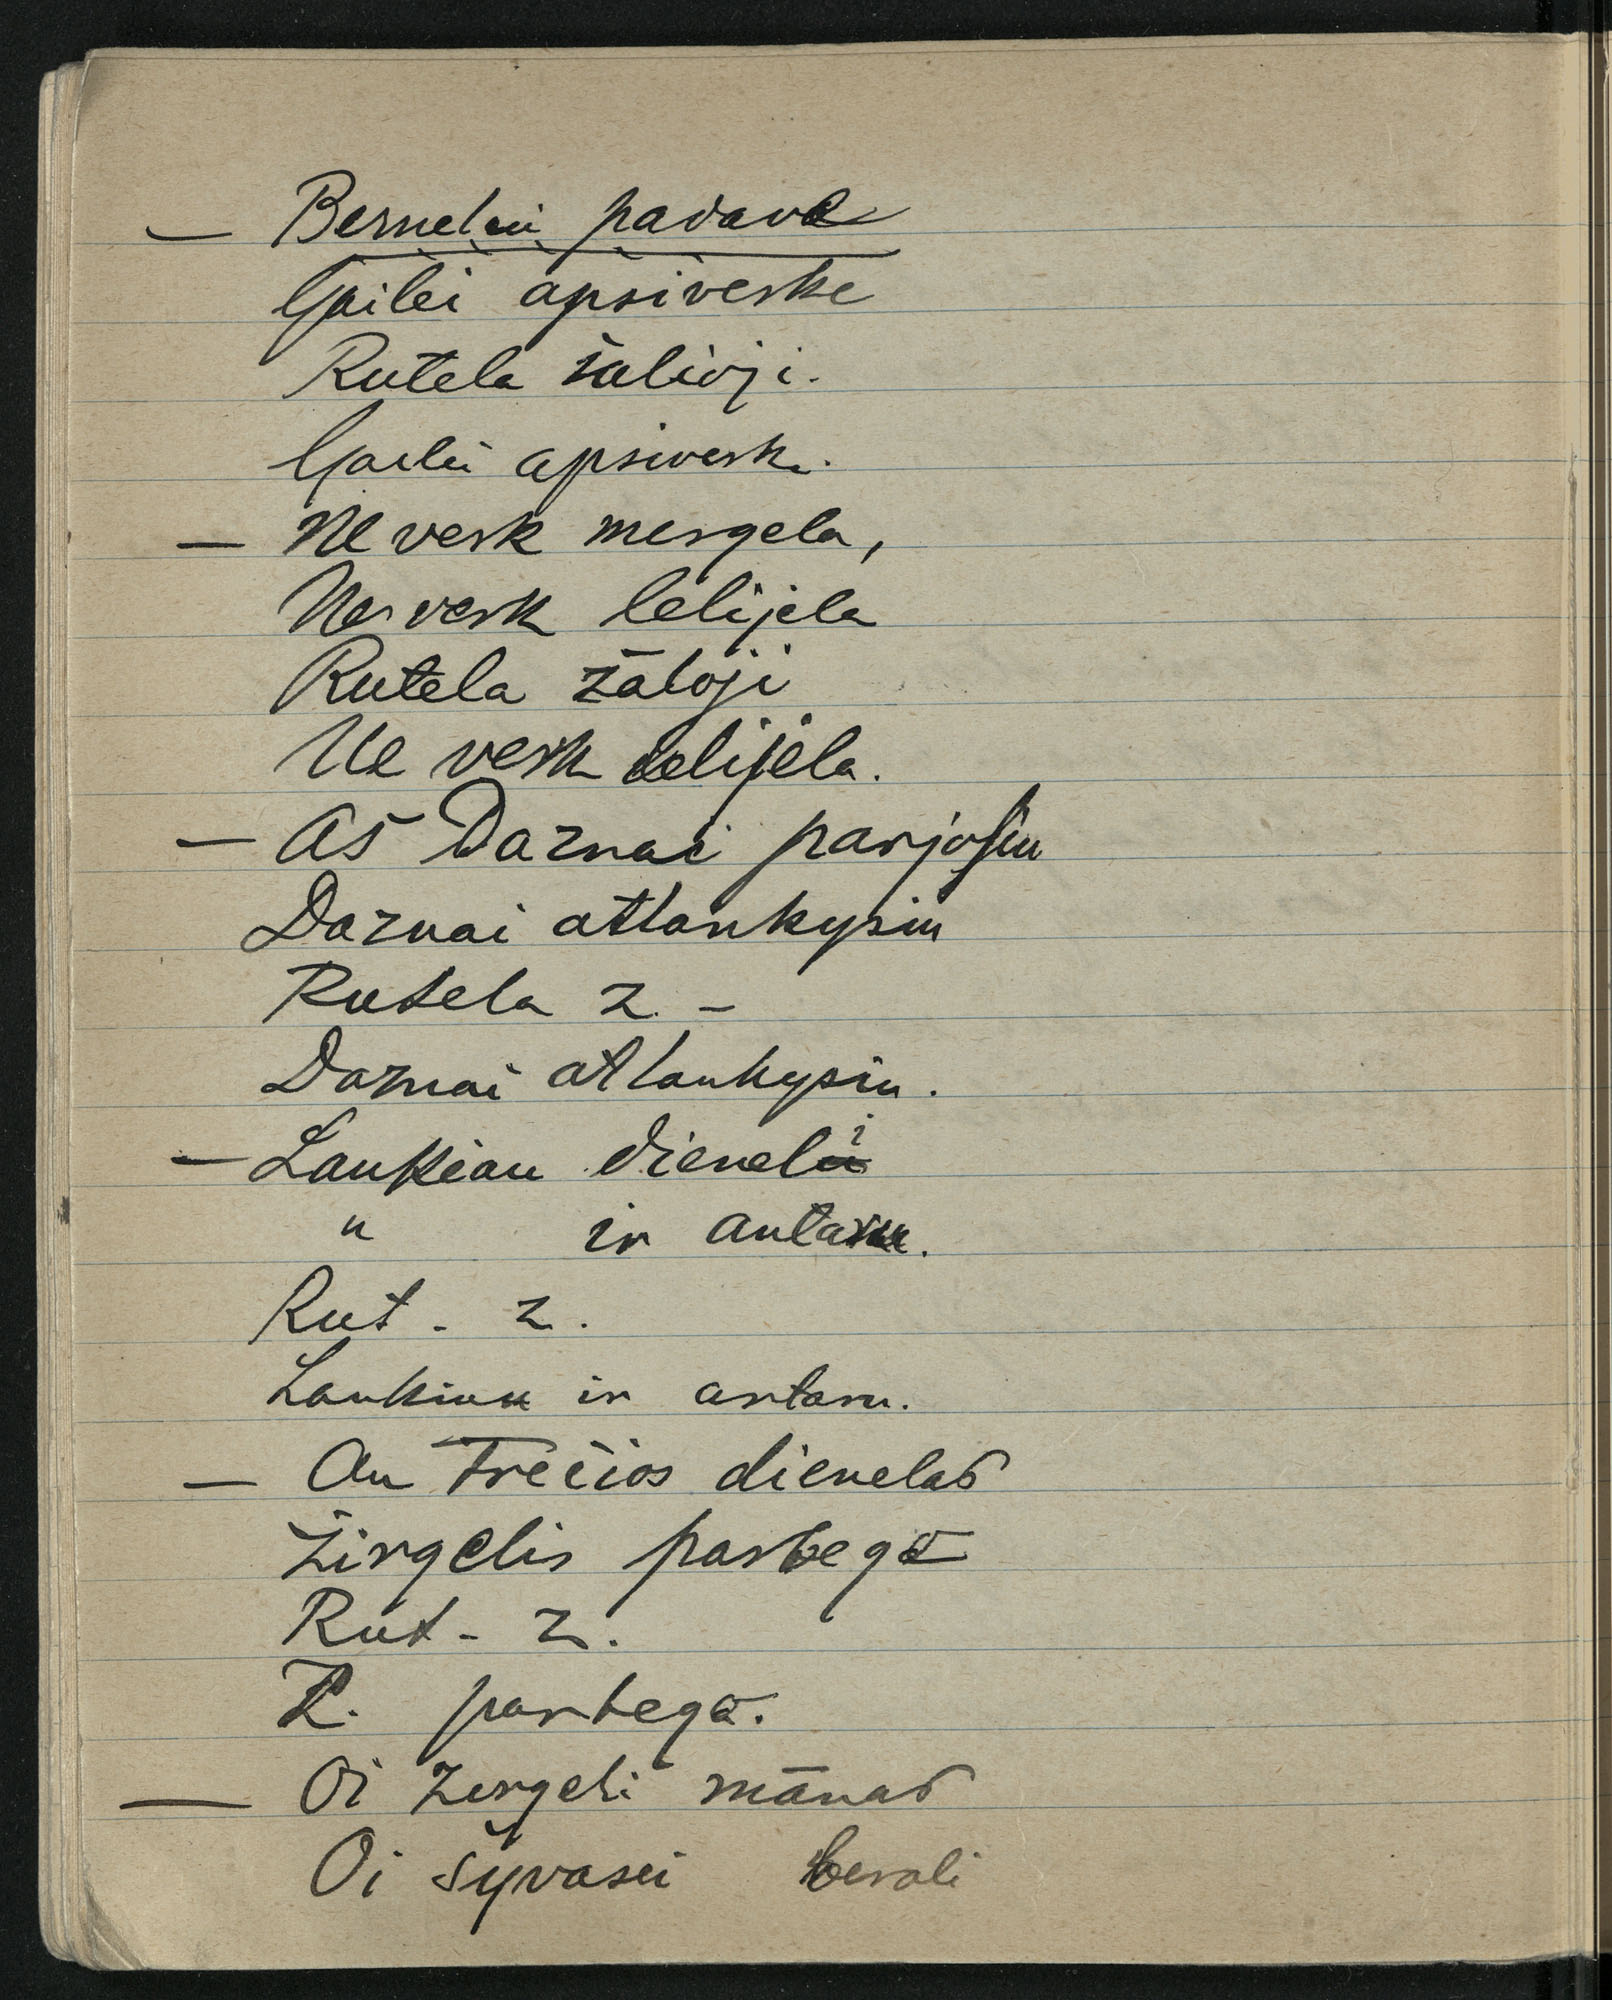 — Bernelui padavė
Gailei apsiverke
Rutela žalioji.
Gailei apsiverk.
— Ne verk mergela,
Ne verk lelijela
Rutela žāloji
Ne verk lelijela.
— Aš Daznai parjosiu
Daznai atlankysiu
Rutela z. –
Daznai atlankysiu.
— Laukiau dieneli
" ir antaru.
Rut - z.
Laukiau ir antaru.
— An Trečios dienelas
Žirgelis parbega
Rut - z.
Ž. parbega.
— Oi zergeli mānas
Oi šyvasei berali